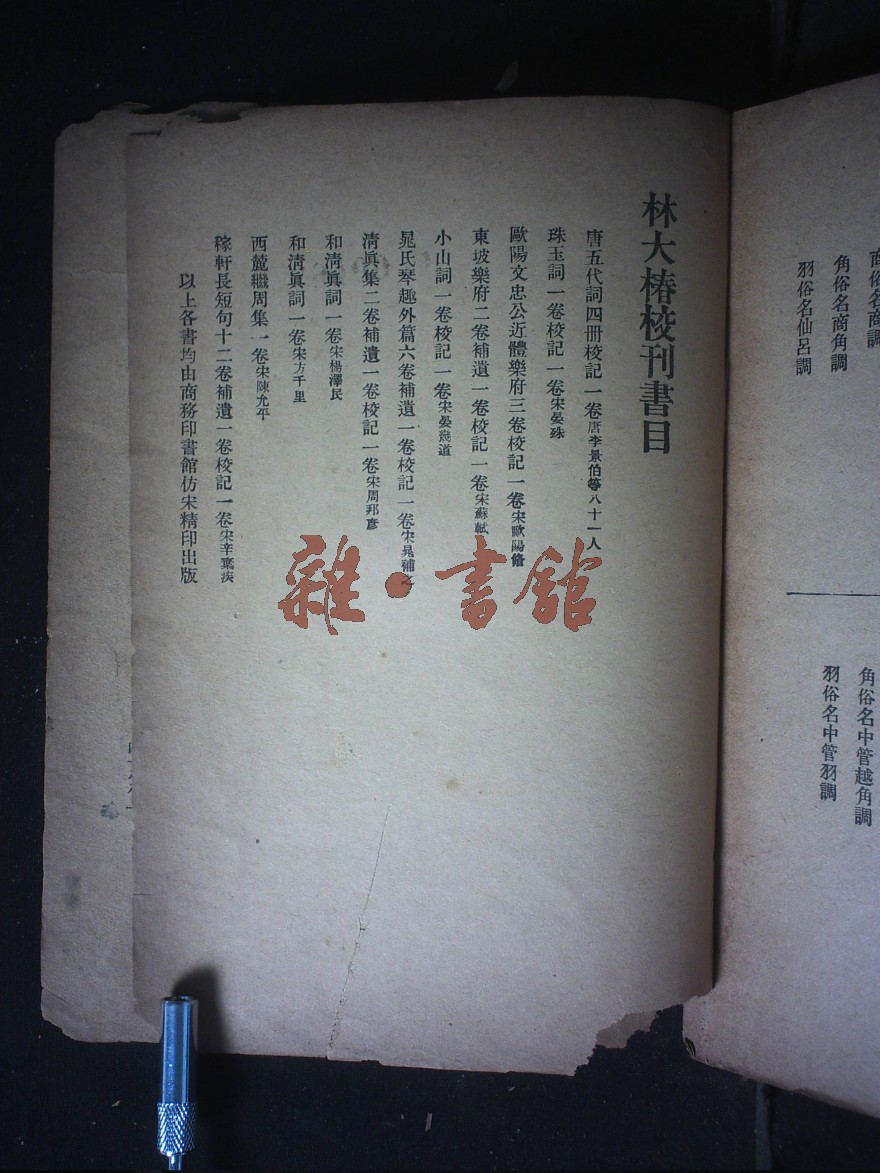 商俗名商調
角俗名商角調
羽俗名仙呂調
角俗名中管越角調
羽俗名中管羽調
林大椿校刊書目
唐五代詞四冊校記一卷唐李景伯等八十一人
珠玉詞一卷校記一卷宋晏殊
歐陽文忠公近體樂府三卷校記一卷宋歐陽脩
東坡樂府二卷補遺一卷校記一卷宋蘇軾
小山詞一卷校記一卷宋晏幾道
晁氏琴趣外篇六卷補遺一卷校記一卷宋晁補之
清眞集二卷補遺一卷校記一卷宋周邦彥
和清眞詞一卷宋楊澤民
和清眞詞一卷宋方千里
西麓繼周集一卷宋陳允平
稼軒長短句十二卷補遺一卷校記一卷宋辛棄疾
以上各書均由商務印書館仿宋精印出版
雜·書館